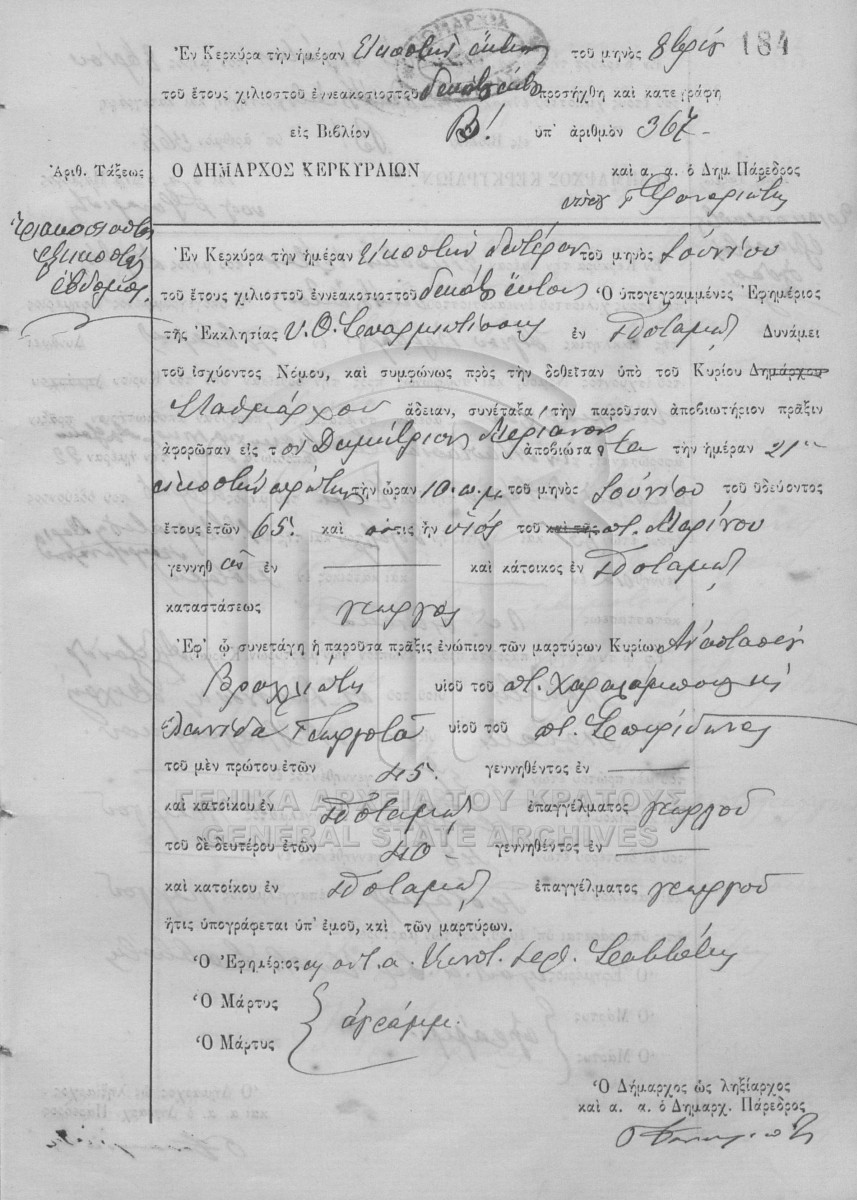 ΔΗΜΑΡΧΙΑ
184
Ἐν Κερκύρᾳ τὴν ἡμέραν Εἰκοστὴν ἕκτην τοῦ μηνὸς 8βρίου
τοῦ ἔτους χιλιοστοῦ ἐννεακοσιοστοῦ δεκάτου ἕκτου προσήχθη καὶ κατεγράφη
εἰς Βιβλίον Β! ὑπ' ἀριθμὸν 367
Ἀριθ. Τάξεως
Ὁ ΔΗΜΑΡΧΟΣ ΚΕΡΚΥΡΑΙΩΝ
καὶ α. α. ὁ Δημ. Πάρεδρος
τριακοσιοστὴ
ἑξηκοστὴ
ἑβδόμη.
Ἐν Κερκύρᾳ τὴν ἡμέραν Εἰκοστὴν δευτέραν τοῦ μηνὸς Ἰουνίου
τοῦ ἔτους χιλιοστοῦ ἐννεακοσιοστοῦ δεκάτου ἕκτου Ὁ ὑπογεγραμμένος Ἐφημέριος
τῆς Ἐκκλησίας Υ. Θ. ἐν Ποταμῷ Δυνάμει
τοῦ ἰσχύοντος Νόμου, καὶ συμφώνως πρὸς τὴν δοθεῖσαν ὑπὸ τοῦ Κυρίου Δημάρχου
Σταθμάρχου ἄδειαν, συνέταξα τὴν παροῦσαν ἀποβιωτήριον πρᾶξιν
ἀφορῶσαν εἰς τὸν Δημήτριον Μεριανον ἀποβιώσαντα τὴν ἡμέραν 21ην
εἰκοστὴν πρώτην τὴν ὥραν 10. π. μ. τοῦ μηνὸς Ἰουνίου τοῦ ὁδεύοντος
ἔτους ἐτῶν 65. καὶ ὅστις ἦν υἱὸς τοῦ καὶ τῆς π. Μαρίνου
γεννηθεὶς ἐν — καὶ κάτοικος ἐν Ποταμῷ
καταστάσεως γεωργὸς
Ἐφ' ᾧ συνετάγη ἡ παροῦσα πρᾶξις ἐνώπιον τῶν μαρτύρων Κυρίων Ἀναστασίου
Βραχλιώτη υἱοῦ τοῦ π. Χαραλάμπους καὶ
Λεωνίδα Γεωργοτᾶ υἱοῦ τοῦ π. Σπυρίδωνος
τοῦ μὲν πρώτου ἐτῶν 45. γεννηθέντος ἐν —
ΓΕΝΙΚΑ ΑΡΧΕΙΑ ΤΟΥ ΚΡΑΤΟΥΣ
καὶ κατοίκου ἐν Ποταμῷ ἐπαγγέλματος γεωργοῦ
GENERAL STATE ARCHIVES
τοῦ δὲ δευτέρου ἐτῶν 40 — γεννηθέντος ἐν —
καὶ κατοίκου ἐν Ποταμῷ ἐπαγγέλματος γεωργοῦ
ἥτις ὑπογράφεται ὑπ' ἐμοῦ, καὶ τῶν μαρτύρων.
Ὁ Ἐφημέριος Κωνστ. ἱερ.
Ὁ Μάρτυς
ἀγράμμ.
Ὁ Μάρτυς
Ὁ Δήμαρχος ὡς ληξίαρχος
καὶ α. α. ὁ Δημαρχ. Πάρεδρος